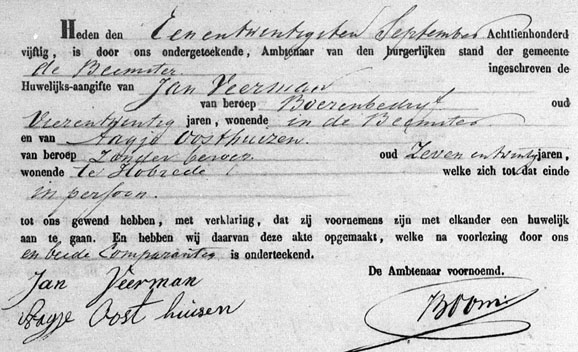 Heden den Een en twintigsten September Achttienhonderd
vijftig, is door ons ondergeteekende, Ambtenaar van den burgerlijken stand der gemeente
de Beemster ingeschreven de
Huwelijks-aangifte van Jan Veerman
van beroep Boerenbedrijf oud
Vierentwintig jaren, wonende in de Beemster
en van Aagje Oosthuizen
van beroep Zonder beroep oud Zeven en twintig jaren,
wonende te Hobrede welke zich tot dat einde
in persoon
tot ons gewend hebben, met verklaring, dat zij voornemens zijn met elkander een huwelijk
aan te gaan. En hebben wij daarvan deze akte opgemaakt, welke na voorlezing door ons
en beide Comparanten is onderteekend.
De Ambtenaar voornoemd.
Jan Veerman
Aagje Oost huisen
Boom